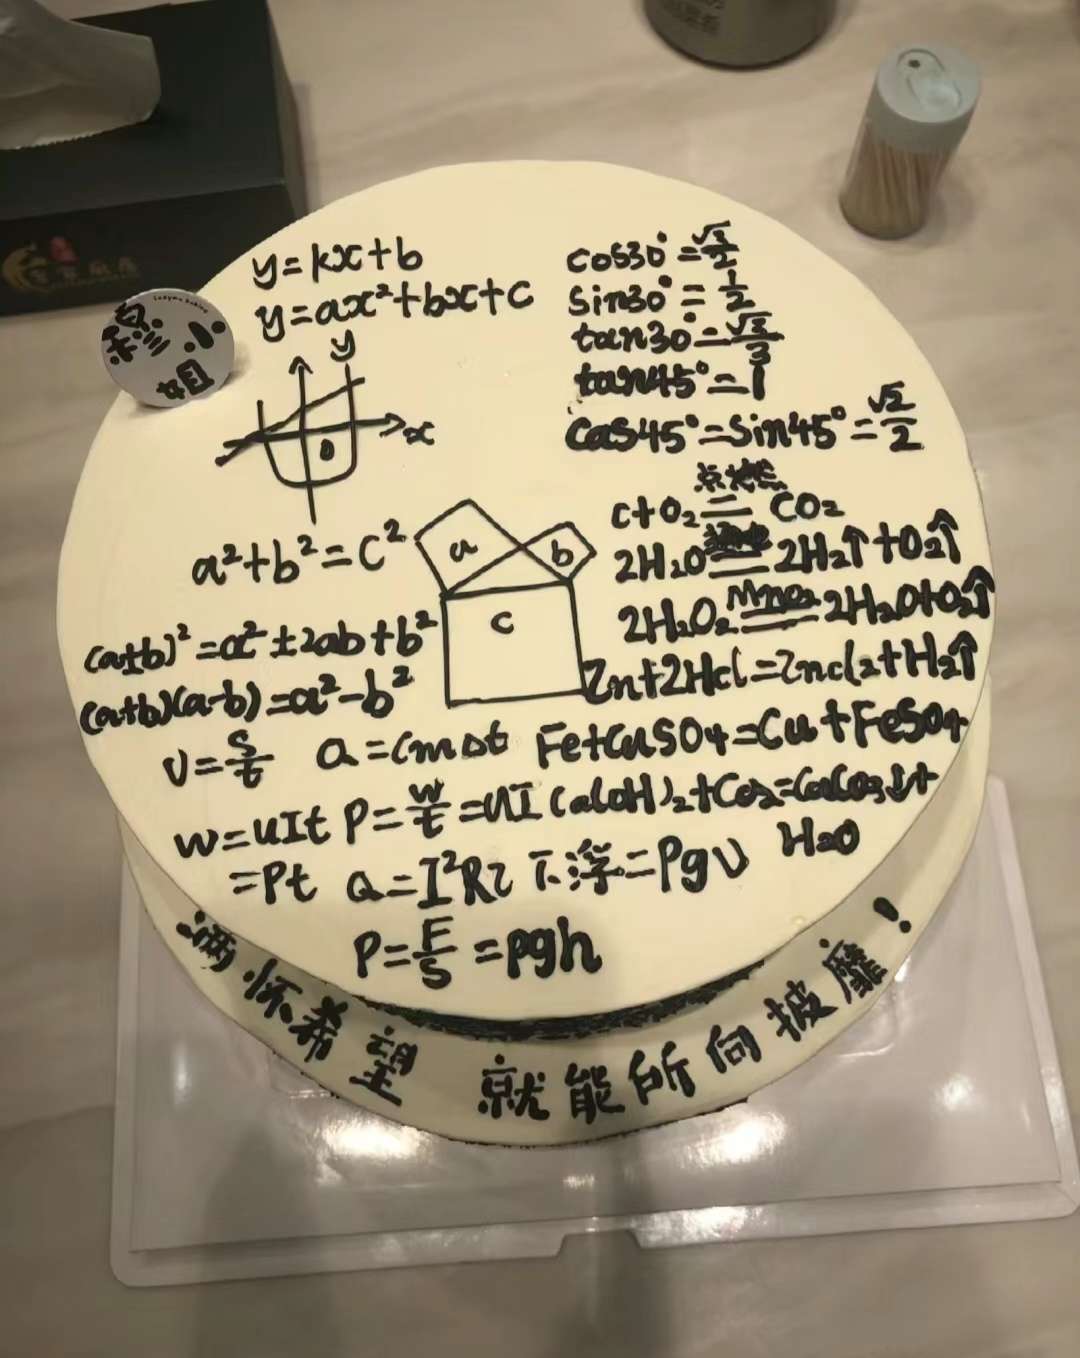 y=kx+b
y=ax²+bx+c
y
x
0
cos30°=√3/2
sin30°=1/2
tan30°=√3/3
tan45°=1
cas45°=sin45°=√2/2
a²+b²=C²
a
b
c
点燃
c+O₂=CO₂
2H₂O=2H₂↑+O₂↑
MnO₂
2H₂O₂=2H₂O+O₂↑
Zn+2Hcl=Zncl₂+H₂↑
(a±b)²=a²±2ab+b²
(a+b)(a-b)=a²-b²
v=s/t
Q=cm△t
Fe+CuSO4=Cu+FeSO4
w=uIt
P=w/t=UI
Ca(OH)₂+CO₂=CaCO₃↓+
H₂O
=Pt
Q=I²Rt
F浮=ρgv
P=F/S=ρgh
满怀希望 就能所向披靡！